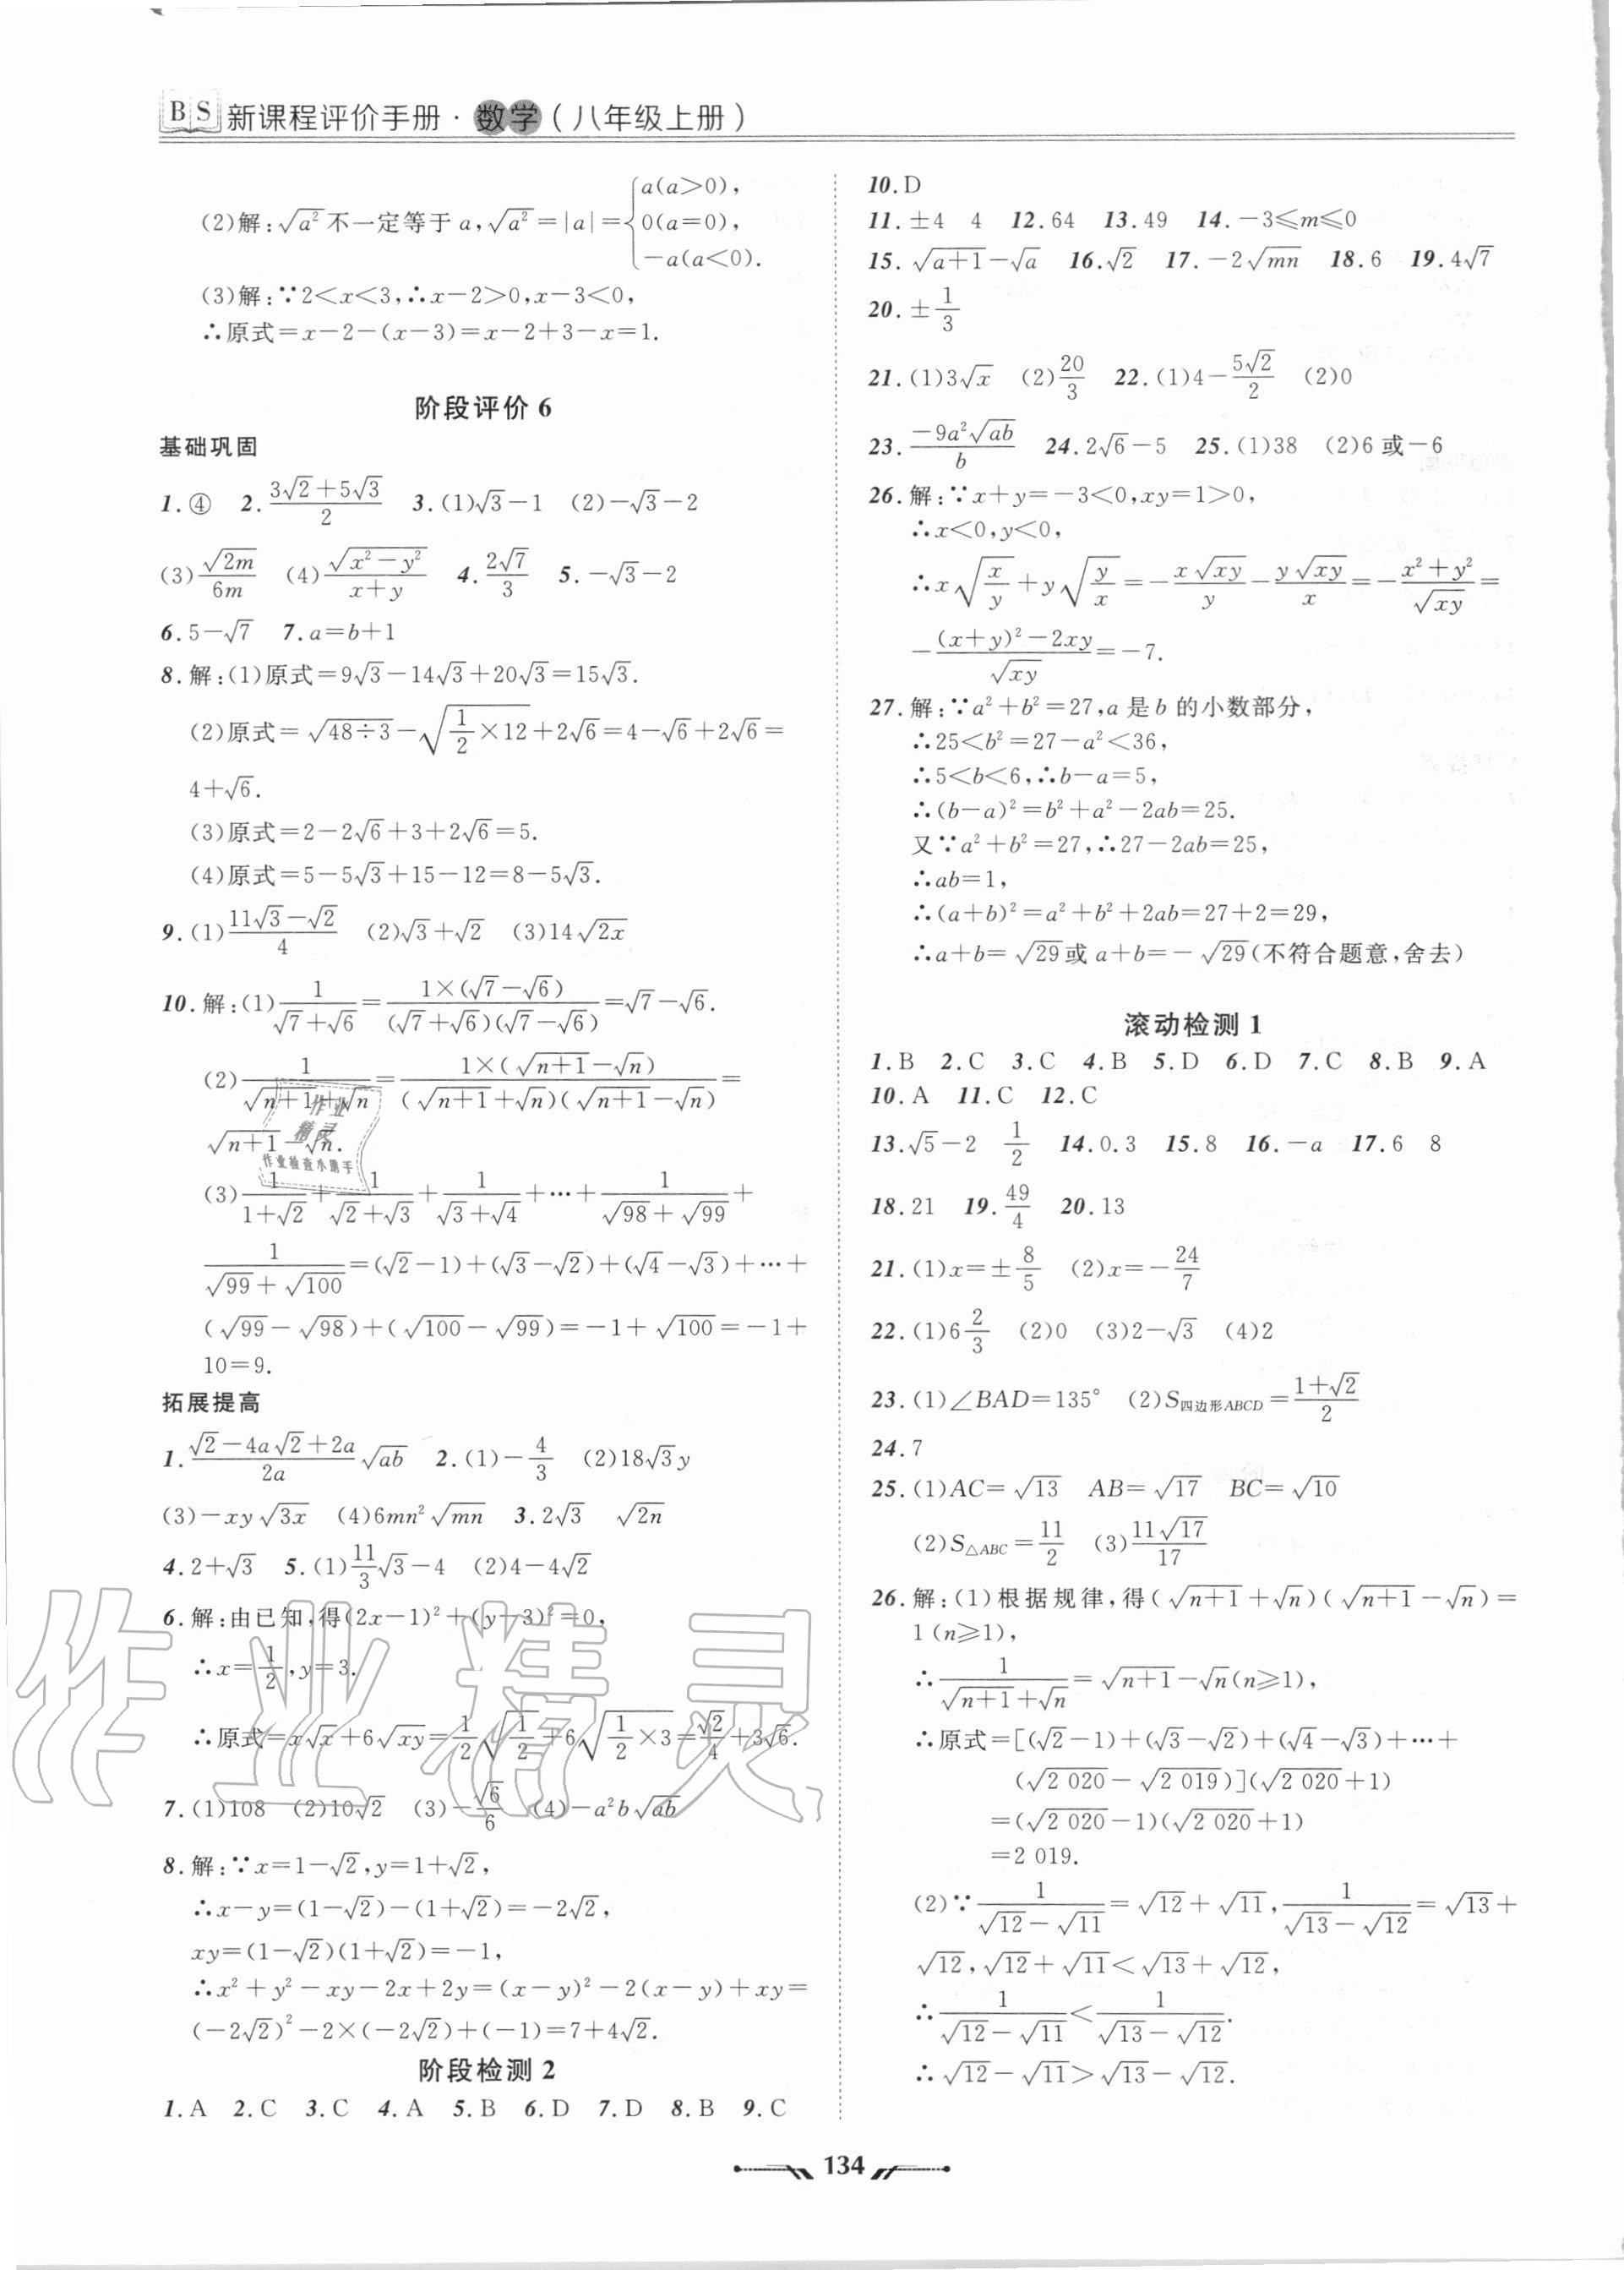 BS 新课程评价手册·数学(八年级上册)
(2)解:√(a²)不一定等于 a,√(a²)=|a|={a(a>0), 0(a=0), −a(a<0).
(3)解:∵2<x<3,∴x−2>0,x−3<0,
∴原式=x−2−(x−3)=x−2+3−x=1.
阶段评价 6
基础巩固
1.④ 2.(3√2+5√3)/2 3.(1)√3−1 (2)−√3−2
(3)√(2m)/(6m) (4)√(x²−y²)/(x+y) 4.2√7/3 5.−√3−2
6.5−√7 7.a=b+1
8.解:(1)原式=9√3−14√3+20√3=15√3.
(2)原式=√(48÷3)−√(1/2×12)+2√6=4−√6+2√6=
4+√6.
(3)原式=2−2√6+3+2√6=5.
(4)原式=5−5√3+15−12=8−5√3.
9.(1)(11√3−√2)/4 (2)√3+√2 (3)14√(2x)
10.解:(1)1/(√7+√6)=1×(√7−√6)/((√7+√6)(√7−√6))=√7−√6.
(2)1/(√(n+1)+√n)=1×(√(n+1)−√n)/((√(n+1)+√n)(√(n+1)−√n))=
√(n+1)−√n.
(3)1/(1+√2)+1/(√2+√3)+1/(√3+√4)+…+1/(√98+√99)+
1/(√99+√100)=(√2−1)+(√3−√2)+(√4−√3)+…+
(√99−√98)+(√100−√99)=−1+√100=−1+
10=9.
拓展提高
1.(√2−4a√2+2a)/(2a)√(ab) 2.(1)−4/3 (2)18√3y
(3)−xy√(3x) (4)6mn²√(mn) 3.2√3 √(2n)
4.2+√3 5.(1)11/3√3−4 (2)4−4√2
6.解:由已知,得(2x−1)²+(y−3)²=0,
∴x=1/2,y=3.
∴原式=x√x+6√(xy)=1/2√(1/2)+6√(1/2×3)=√2/4+3√6.
7.(1)108 (2)10√2 (3)−√6/6 (4)−a²b√(ab)
8.解:∵x=1−√2,y=1+√2,
∴x−y=(1−√2)−(1+√2)=−2√2,
xy=(1−√2)(1+√2)=−1,
∴x²+y²−xy−2x+2y=(x−y)²−2(x−y)+xy=
(−2√2)²−2×(−2√2)+(−1)=7+4√2.
阶段检测 2
1.A 2.C 3.C 4.A 5.B 6.D 7.D 8.B 9.C
10.D
11.±4 4 12.64 13.49 14.−3≤m≤0
15.√(a+1)−√a 16.√2 17.−2√(mn) 18.6 19.4√7
20.±1/3
21.(1)3√x (2)20/3 22.(1)4−5√2/2 (2)0
23.−9a²√(ab)/b 24.2√6−5 25.(1)38 (2)6或−6
26.解:∵x+y=−3<0,xy=1>0,
∴x<0,y<0,
∴x√(x/y)+y√(y/x)=−x√(xy)/y−y√(xy)/x=−(x²+y²)/√(xy)=
−((x+y)²−2xy)/√(xy)=−7.
27.解:∵a²+b²=27,a 是 b 的小数部分,
∴25<b²=27−a²<36,
∴5<b<6,∴b−a=5,
∴(b−a)²=b²+a²−2ab=25.
又∵a²+b²=27,∴27−2ab=25,
∴ab=1,
∴(a+b)²=a²+b²+2ab=27+2=29,
∴a+b=√29或 a+b=−√29(不符合题意,舍去)
滚动检测 1
1.B 2.C 3.C 4.B 5.D 6.D 7.C 8.B 9.A
10.A 11.C 12.C
13.√5−2 1/2 14.0.3 15.8 16.−a 17.6 8
18.21 19.49/4 20.13
21.(1)x=±8/5 (2)x=−24/7
22.(1)6 2/3 (2)0 (3)2−√3 (4)2
23.(1)∠BAD=135° (2)S四边形ABCD=(1+√2)/2
24.7
25.(1)AC=√13 AB=√17 BC=√10
(2)S△ABC=11/2 (3)11√17/17
26.解:(1)根据规律,得(√(n+1)+√n)(√(n+1)−√n)=
1(n≥1),
∴1/(√(n+1)+√n)=√(n+1)−√n(n≥1),
∴原式=[(√2−1)+(√3−√2)+(√4−√3)+…+
(√2 020−√2 019)](√2 020+1)
=(√2 020−1)(√2 020+1)
=2 019.
(2)∵1/(√12−√11)=√12+√11,1/(√13−√12)=√13+
√12,√12+√11<√13+√12,
∴1/(√12−√11)<1/(√13−√12).
∴√12−√11>√13−√12.
134
作业精灵
作业
精灵
作业检查小助手